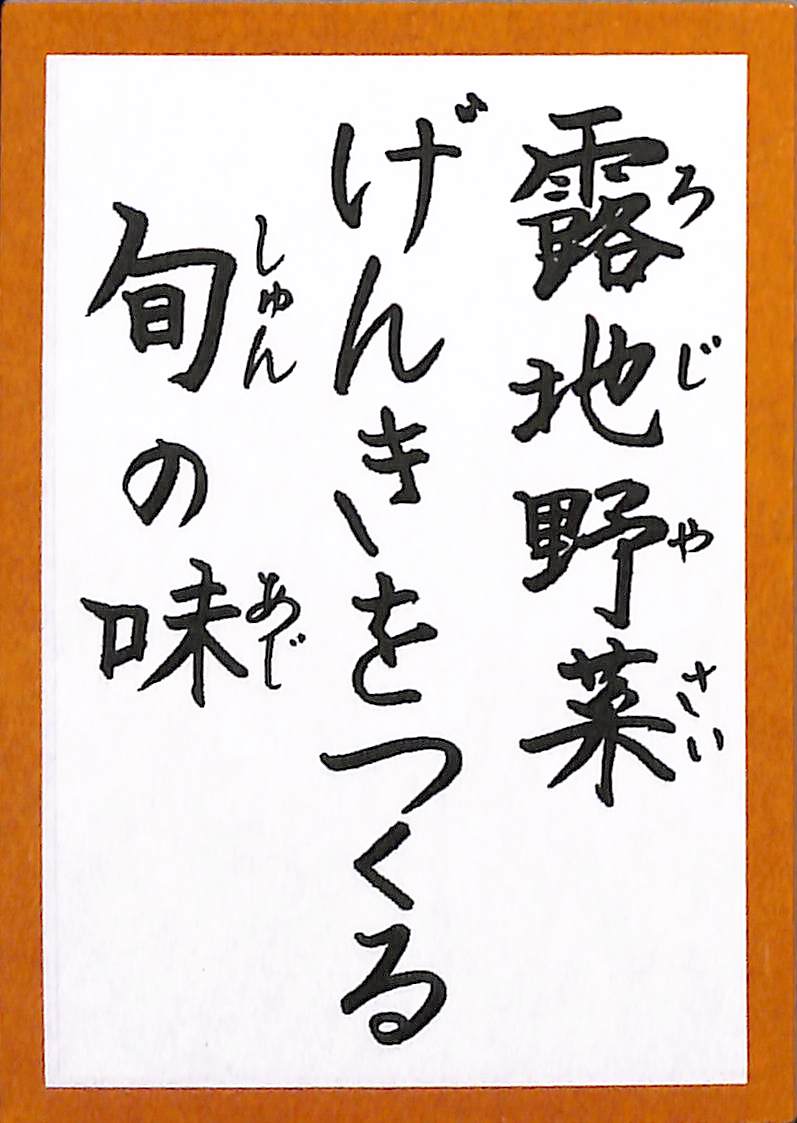 露地野菜
ろじやさい
げんきをつくる
旬の味
しゅん あじ